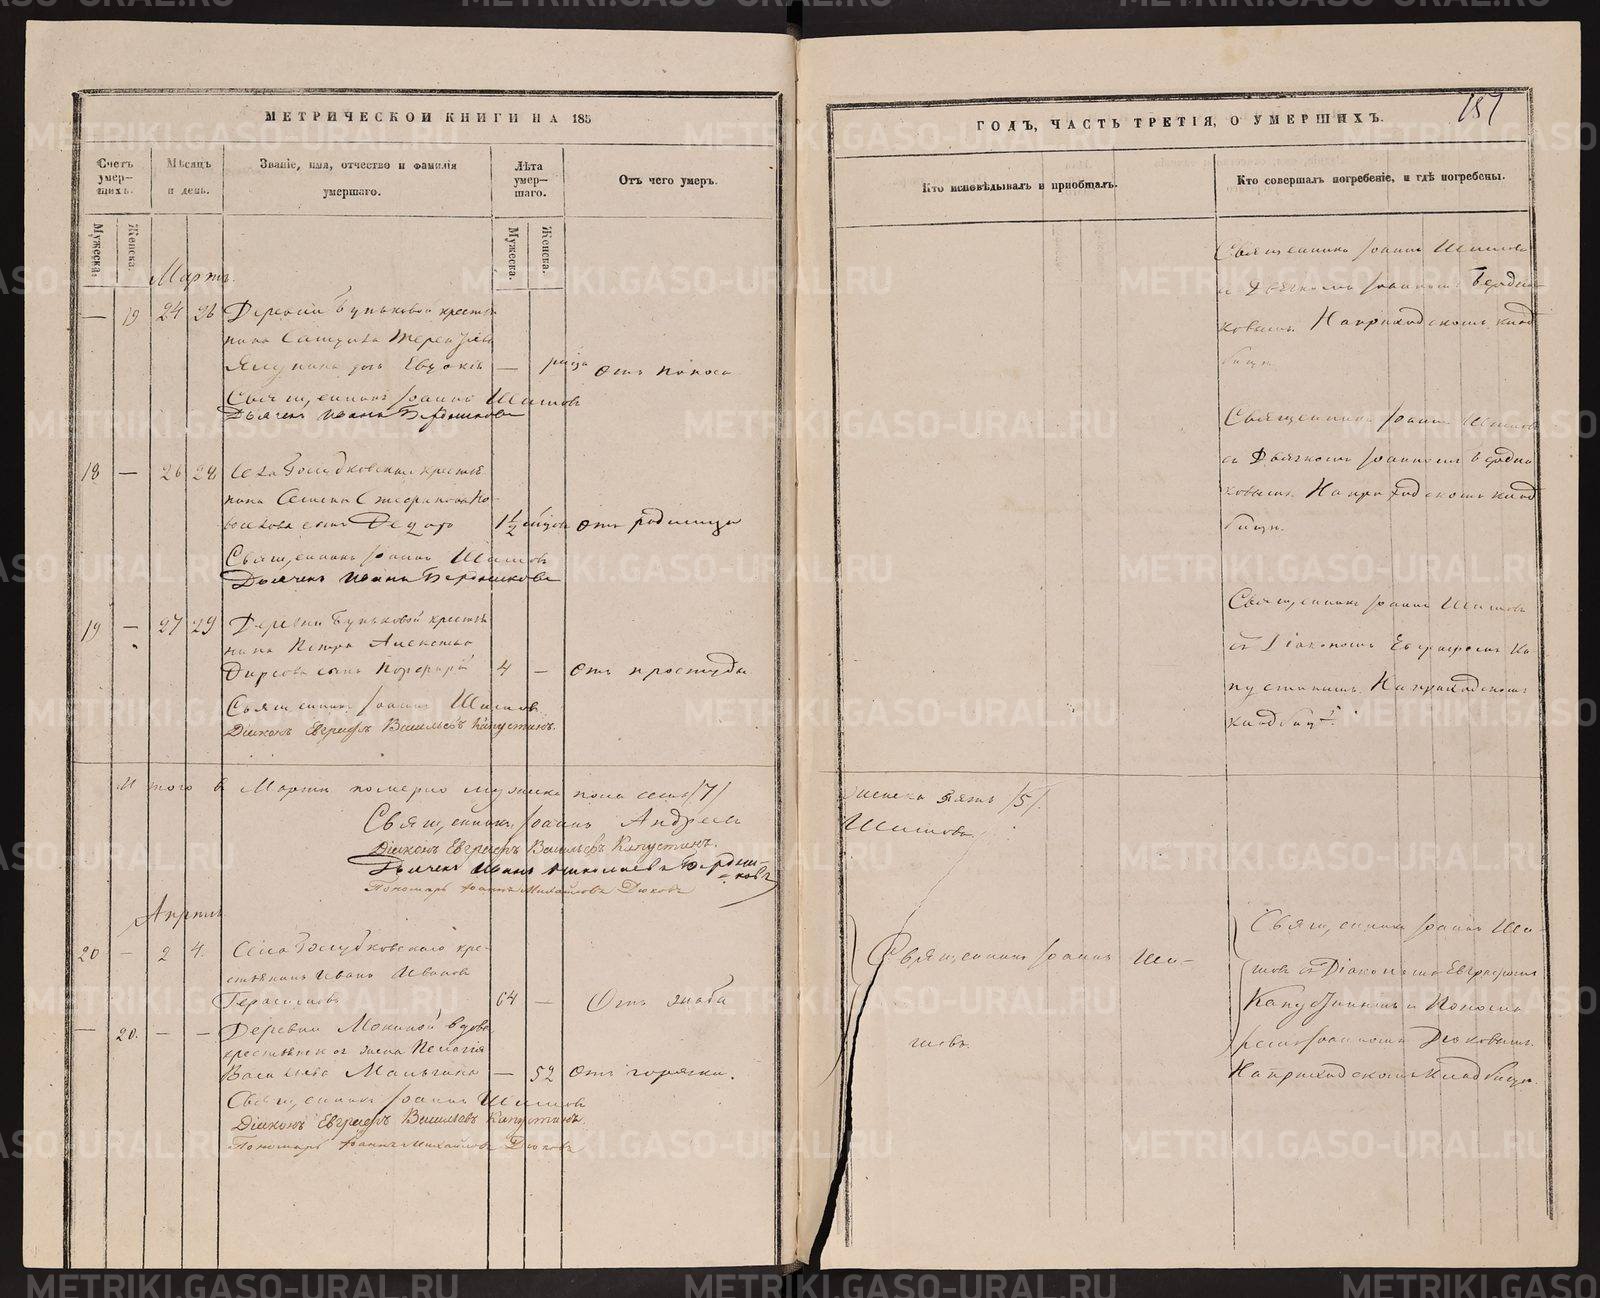 МЕТРИЧЕСКОЙ КНИГИ НА 185
Счетъ умер-шихъ.
Мѣсяцъ и день.
Званіе, имя, отчество и фамилія умершаго.
Лѣта умер-шаго.
Отъ чего умеръ.
Мужеска.
Женска.
Мужеска.
Женска.
Мартъ.
— 19 24 26 Деревни Буньковой крестья
нина
дочь Евдокія —
Отъ поноса
Священникъ Іоаннъ Шишовъ
Дьячекъ Иванъ Бердниковъ
18 — 26 28 Села Голубковскаго крестья
нина Семена
сынъ Федотъ 1½ Отъ родимца
Священникъ Іоаннъ Шишовъ
Дьячекъ Иванъ Бердниковъ
19 — 27 29 Деревни Буньковой крестья
нина Петра Алексѣева
сынъ Порфирій 4 — Отъ простуды
Священникъ Іоаннъ Шишовъ
Діаконъ Евграфъ Васильевъ Капустинъ.
Итого в Мартѣ померло мужеска пола семь /7/
Священникъ Іоаннъ Андреевъ
Діаконъ Евграфъ Васильевъ Капустинъ.
Дьячекъ Иванъ Николаевъ Бердни-
ковъ
Пономарь Іоаннъ Михайловъ Дюковъ
Апрѣль
20 — 2 4 Села Голубковскаго кре-
стьянинъ Иванъ Ивановъ
Герасимовъ 64 — Отъ
— 20. — — Деревни Мокиной вдова
крестьянская жена Пелагія
Васильева Мальгина — 52 Отъ горячки.
Священникъ Іоаннъ Шишовъ
Діаконъ Евграфъ Васильевъ Капустинъ.
Пономарь Іоаннъ Михайловъ Дюковъ
157
ГОДЪ, ЧАСТЬ ТРЕТІЯ, О УМЕРШИХЪ.
Кто исповѣдывалъ и пріобщалъ.
Кто совершалъ погребеніе, и гдѣ погребены.
Священникъ Іоаннъ Шишовъ
съ Дьячкомъ Іоанномъ Бердни
ковымъ. На приходскомъ клад
бищѣ.
Священникъ Іоаннъ Шишовъ
съ Дьячкомъ Іоанномъ Бердни
ковымъ. На приходскомъ клад
бищѣ.
Священникъ Іоаннъ Шишовъ
съ Діакономъ Евграфомъ Ка
пустинымъ. На приходскомъ
кладбищѣ.
женска пять /5/.
Шишовъ.
Священникъ Іоаннъ Ши-
шовъ.
Священникъ Іоаннъ Ши-
шовъ съ Діакономъ Евграфомъ
Капустинымъ и Понома
ремъ Іоанномъ Дюковымъ.
На приходскомъ кладбищѣ.
METRIKI.GASO-URAL.RU